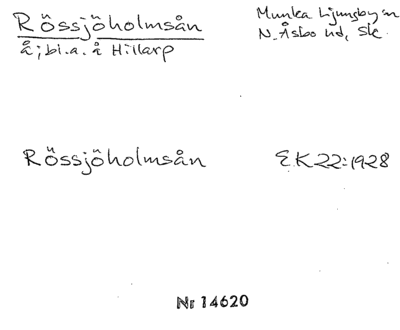 Rössjöholmsån
å; bl.a. å Hillarp
Munka Ljungby sn
N. Åsbo hd, Sk.
Rössjöholmsån
EK 22:1928
Nr 14620